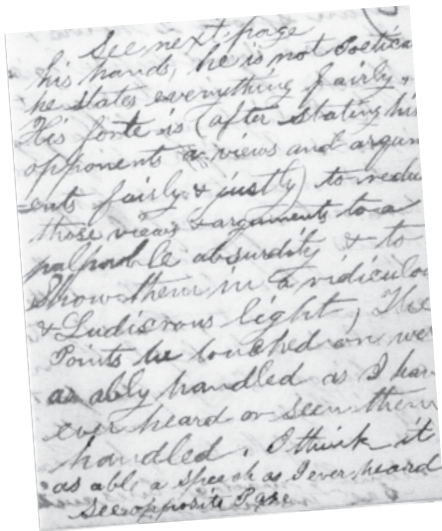 See next page
his hands, he is not Poetica
he states everything fairly &
His forte is (after stating his
opponents views and argum
-ents fairly & justly) to redu
those views & arguments to a
palpable absurdity & to
Show them in a ridiculou
& Ludicrous light, The
Points he touched on we
as ably handled as I hav
ever heard or seen them
handled. I think it
as able a Speech as I ever heard
See opposite Page